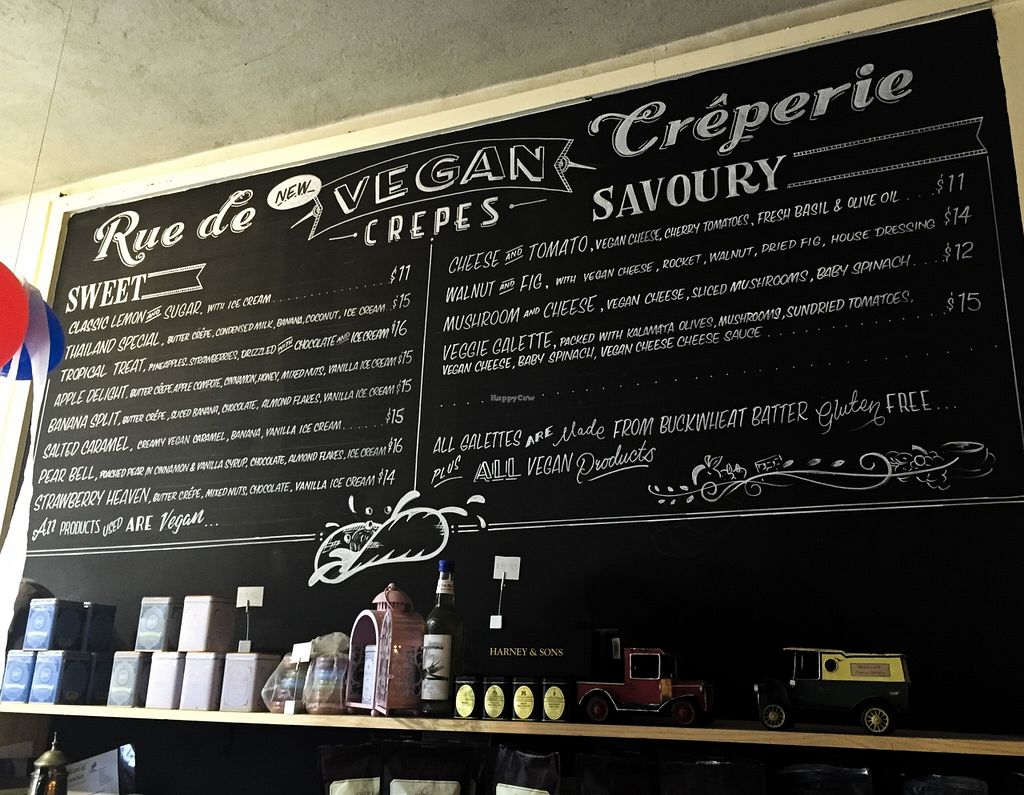 Rue de
NEW
VEGAN
CREPES
Crêperie
SWEET
CLASSIC LEMON AND SUGAR, WITH ICE CREAM . . . . . $11
THAILAND SPECIAL, BUTTER CRÊPE, CONDENSED MILK, BANANA, COCONUT, ICE CREAM . $15
TROPICAL TREAT, PINEAPPLES, STRAWBERRIES, DRIZZLED WITH CHOCOLATE AND ICE CREAM $16
APPLE DELIGHT, BUTTER CRÊPE, APPLE COMPOTE, CINNAMON, HONEY, MIXED NUTS, VANILLA ICE CREAM $15
BANANA SPLIT, BUTTER CRÊPE, SLICED BANANA, CHOCOLATE, ALMOND FLAKES, VANILLA ICE CREAM $15
SALTED CARAMEL, CREAMY VEGAN CARAMEL, BANANA, VANILLA ICE CREAM . . . . $15
PEAR BELL, POACHED PEAR IN CINNAMON & VANILLA SYRUP, CHOCOLATE, ALMOND FLAKES, ICE CREAM $16
STRAWBERRY HEAVEN, BUTTER CRÊPE, MIXED NUTS, CHOCOLATE, VANILLA ICE CREAM $14
All PRODUCTS USED ARE Vegan...
SAVOURY
CHEESE AND TOMATO, VEGAN CHEESE, CHERRY TOMATOES, FRESH BASIL & OLIVE OIL . . . $11
WALNUT AND FIG, WITH VEGAN CHEESE, ROCKET, WALNUT, DRIED FIG, HOUSE DRESSING $14
MUSHROOM AND CHEESE, VEGAN CHEESE, SLICED MUSHROOMS, BABY SPINACH . . . $12
VEGGIE GALETTE, PACKED WITH KALAMATA OLIVES, MUSHROOMS, SUNDRIED TOMATOES,
VEGAN CHEESE, BABY SPINACH, VEGAN CHEESE CHEESE SAUCE . . . . . $15
HappyCow
ALL GALETTES ARE Made FROM BUCKWHEAT BATTER Gluten FREE...
PLUS ALL VEGAN Products
HARNEY & SONS